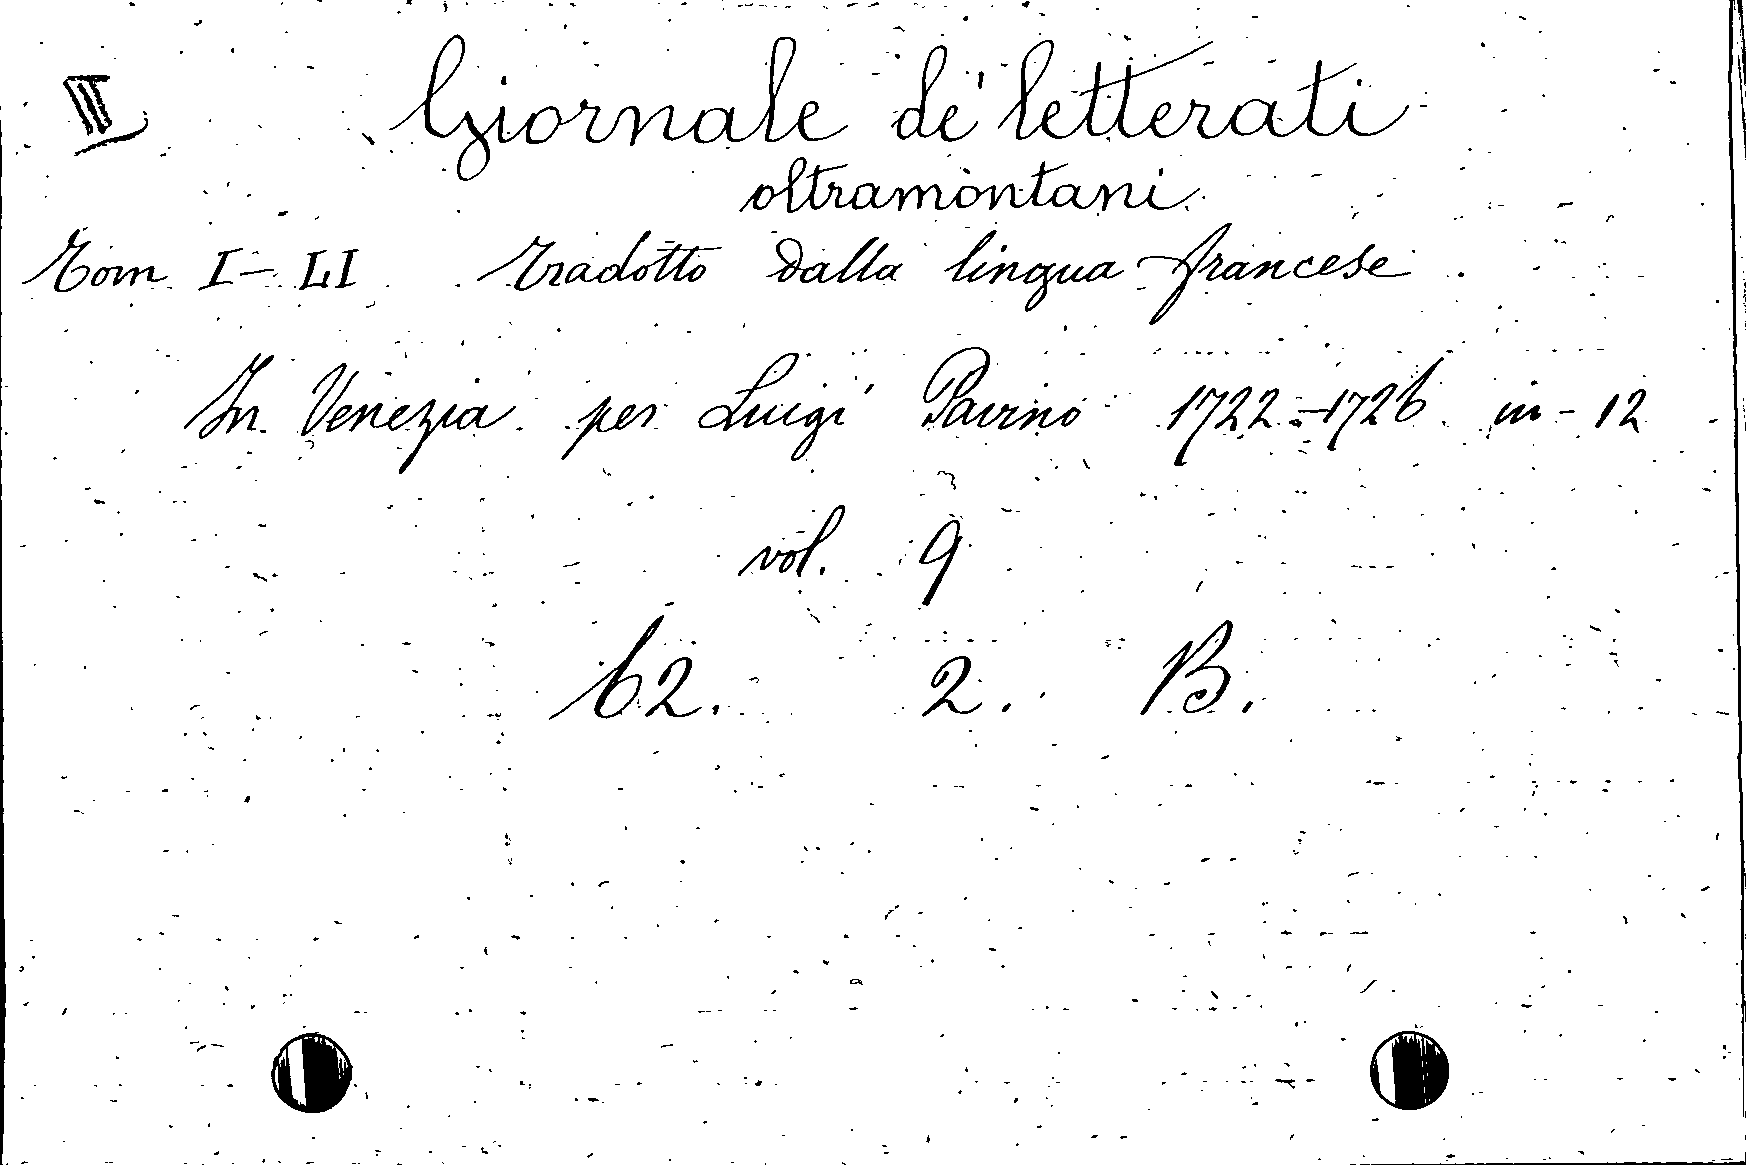 III
Giornale de' letterati
oltramontani
Tom I - LI tradotto dalla lingua francese
In Venezia per Luigi Pavino 1722-1726 in-12
vol. 9
62. 2. B.